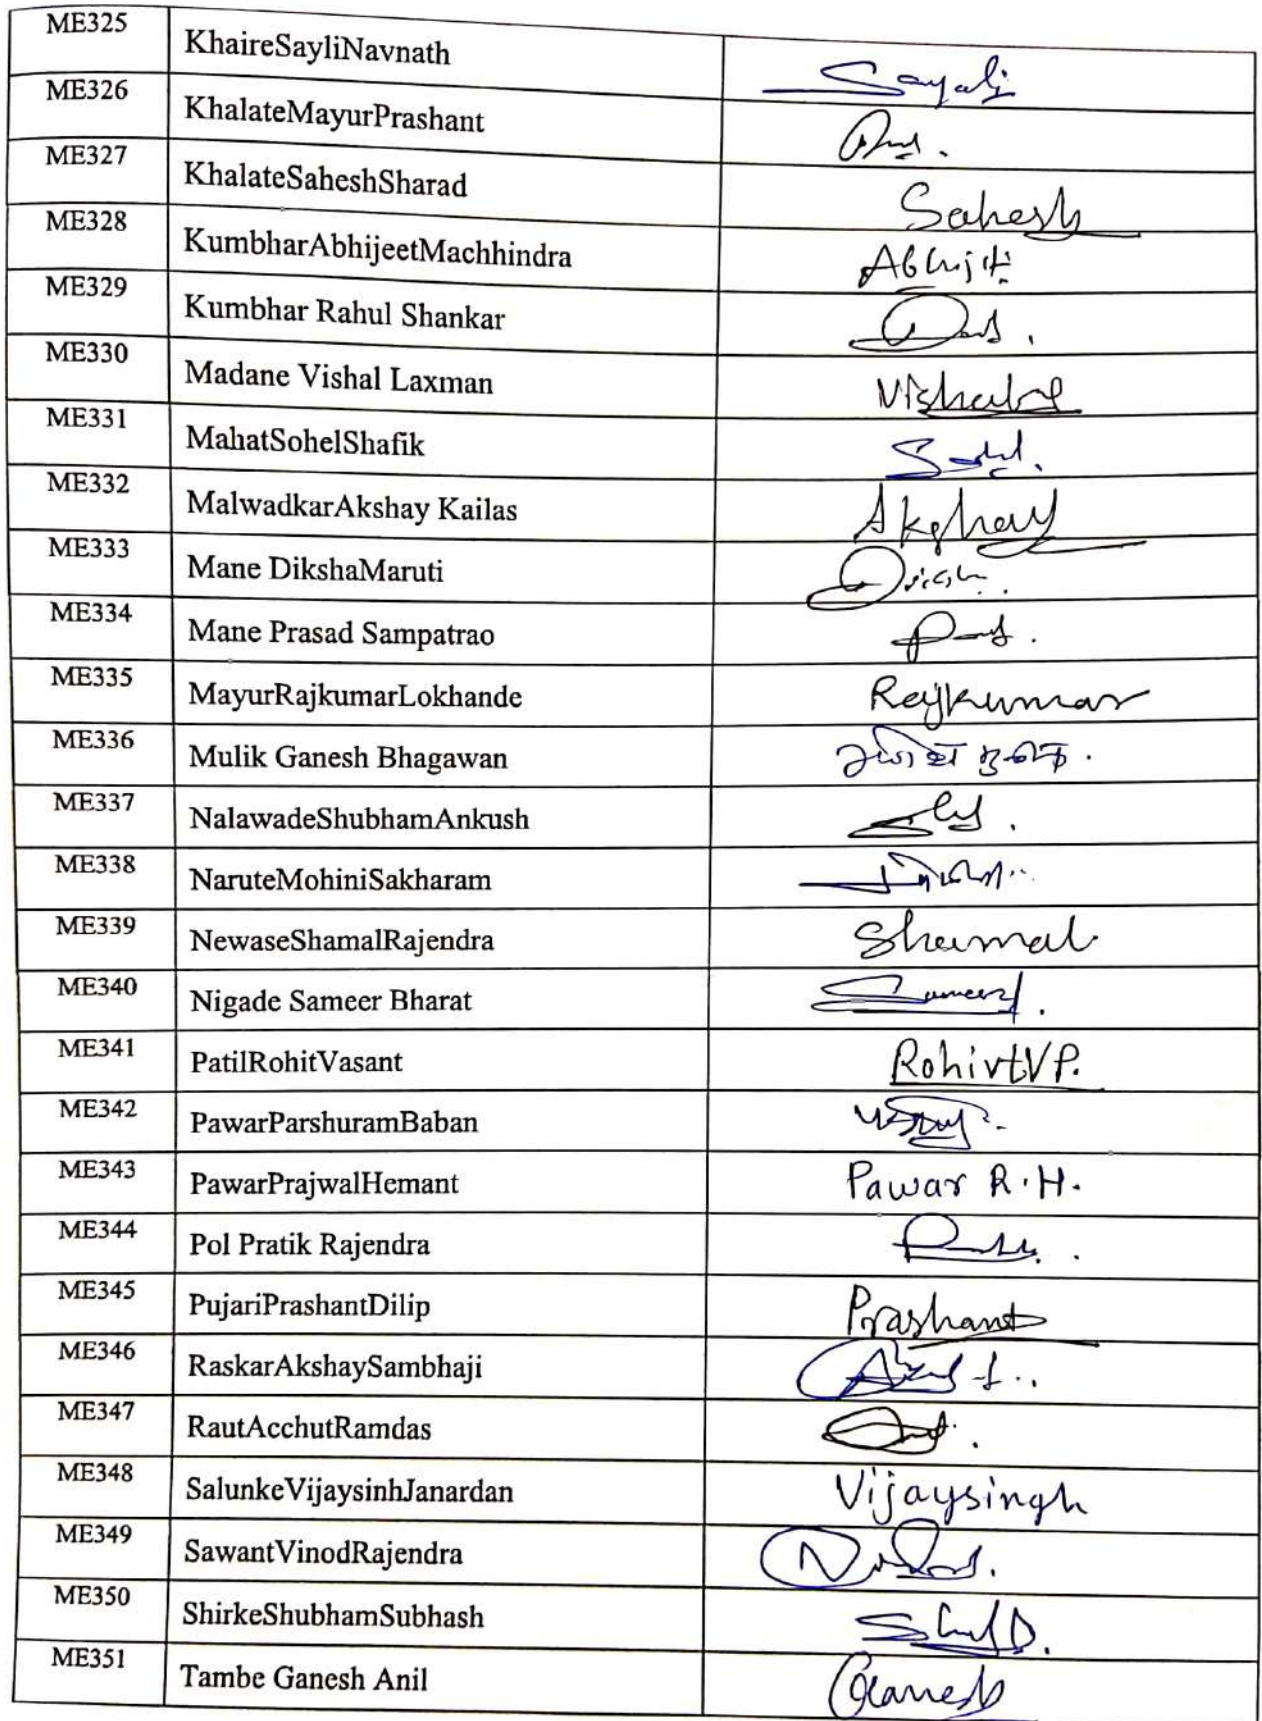 ME325 KhaireSayliNavnath Sayali
ME326 KhalateMayurPrashant
ME327 KhalateSaheshSharad Sahesh
ME328 KumbharAbhijeetMachhindra Abhijit
ME329 Kumbhar Rahul Shankar
ME330 Madane Vishal Laxman Vishal
ME331 MahatSohelShafik Sohel.
ME332 MalwadkarAkshay Kailas Akshay
ME333 Mane DikshaMaruti
ME334 Mane Prasad Sampatrao
ME335 MayurRajkumarLokhande Rajkumar
ME336 Mulik Ganesh Bhagawan
ME337 NalawadeShubhamAnkush
ME338 NaruteMohiniSakharam
ME339 NewaseShamalRajendra Shamal
ME340 Nigade Sameer Bharat Sameer.
ME341 PatilRohitVasant RohivtVP.
ME342 PawarParshuramBaban
ME343 PawarPrajwalHemant Pawar R.H.
ME344 Pol Pratik Rajendra
ME345 PujariPrashantDilip Prashant
ME346 RaskarAkshaySambhaji
ME347 RautAcchutRamdas
ME348 SalunkeVijaysinhJanardan Vijaysingh
ME349 SawantVinodRajendra
ME350 ShirkeShubhamSubhash
ME351 Tambe Ganesh Anil Ganesh